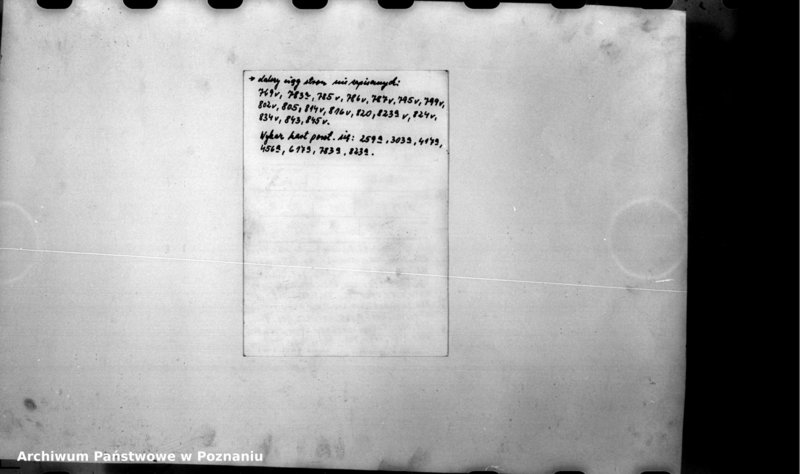 → dalszy ciąg stron nie zapisanych:
769v, 783a, 785v, 786v, 787v, 795v, 799v,
802v, 805, 814v, 816v, 820, 823a v, 824v,
834v, 843, 845v.
Wykaz kart powt. się: 259a, 303a, 417a,
456a, 617a, 783a, 823a.
Archiwum Państwowe w Poznaniu